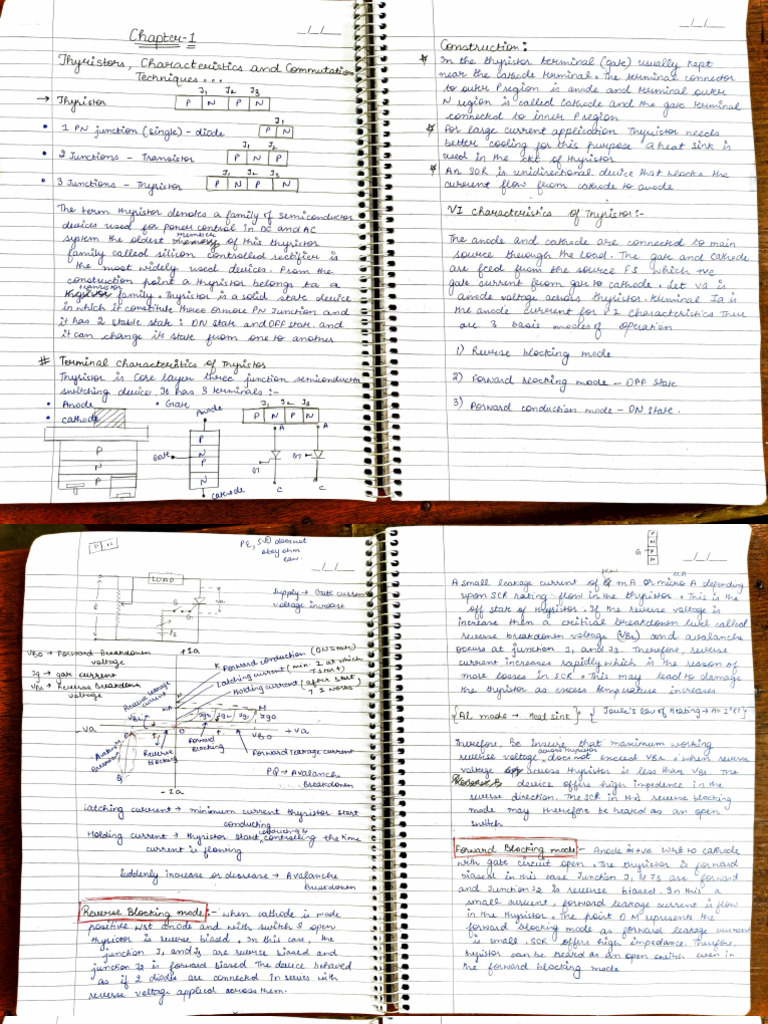 Chapter-1
__/__/__
Thyristors, Characteristics and Commutation
Techniques...
→ Thyristor
J1 J2 J3
P N P N
• 1 PN junction (single) - diode
J1
P N
• 2 Junctions - Transistor
J1 J2
P N P
• 3 Junctions - Tryristor
J1 J2 J3
P N P N
The term thyristor denotes a family of semiconductor
devices used for power control in DC and AC
system the oldest member of this thyristor
family called silicon controlled rectifier is
the most widely used devices. From the
construction point a thyristor belongs to a
transistor family. Tryristor is a solid state device
in which it constitute three or more PN Junction and
it has 2 stable state : ON state and OFF state. and
it can change its state from one to another
# Terminal characteristics of Tryristor
Tryristor is core layer three junction semiconductor
switching device. It has 3 terminals :-
• Anode • Gate
• cathode
P
N
P
Anode
Gate
P
N
P
N
cathode
J1 J2 J3
P N P N
A A
G G
C C
__/__/__
Construction :
* In the thyristor terminal (gate) usually kept
near the cathode terminal. The terminal connector
to outer P region is anode and terminal outer
N region is called cathode and the gate terminal
connected to inner P region
* For large current application Tryristor needs
better cooling for this purpose a heat sink is
used in the ckt of thyristor
* An SCR is unidirectional device that blocks the
current flow from cathode to anode
VI characteristics of Tryristor :-
The anode and cathode are connected to main
source through the local. The gate and cathode
are feed from the source ES which +vc
gate current from gate to cathode. Let va is
anode voltage across thyristor terminal Ia is
the anode current for V I characteristics There
are 3 basis modes of operation
1) Reverse blocking mode
2) Forward blocking mode - OFF state
3) Forward conduction mode - ON state.
P N
PE, SCD doesnot
obey ohm
law.
__/__/__
LOAD
E
G
Es
Supply → Gate current
voltage increase
VBO → Forward Breakdown
voltage
Ig → gate current
VBR → Reverse breakdown
voltage
+Ia
K Forward conduction (ON state)
Latching current (min. I at which
T start)
Holding current (after start
T I works)
Reverse leakage
current
M
Ig3 Ig2 Ig1 Ig0
-Va
VBR
O
VBO
+va
Avalanche
Breakdown
P
Q
Reverse
blocking
Forward
blocking
Forward leakage current
PQ → Avalanche
Breakdown
-Ia
Latching current → minimum current thyristor start
conducting
Holding current → thyristor start conducting & controlling the time
current is flowing
Suddenly increase or decrease → Avalanche
breakdown
Reverse Blocking mode :- when cathode is made
positive wrt anode and with switch S open
thyristor is reverse biased. In this case, the
junction J1 and J3 are reverse biased and
junction J2 is forward biased The device behaved
as if 2 diodes are connected in series with
reverse voltage applied across them.
P
N
G
__/__/__
A small leakage current of few mA or micro A depending
upon SCR rating flow in the thyristor. This is the
off state of thyristor. If the reverse voltage is
increase then a critical breakdown level called
reverse breakdown voltage (VBR) and avalanche
occurs at junction J1 and J3. Therefore, reverse
current increases rapidly which is the reason of
more losses in SCR. This may lead to damage
the thyristor as excess temperature increases
{Al mode → Heat sink} {Joule's law of Heating → H = I²(t)}
Therefore, be insure that maximum working
reverse voltage across thyristor does not exceed VBR. when reverse
voltage across thyristor is less than VBR The
device offers high impedence in the
reverse direction. The SCR in this reverse blocking
mode may therefore be treated as an open
switch
Forward Blocking mode :- Anode is +va wrt to cathode
with gate circuit open. The thyristor is forward
biased in this case Junction J1 & J3 are forward
and Junction J2 is reverse biased. In this a
small current, forward leakage current is flow
in the thyristor. The point O M represents the
forward blocking mode as forward leakage current
is small. SCR offers high impedance. Therefore,
thyristor can be treated as an open switch even in
the forward blocking mode